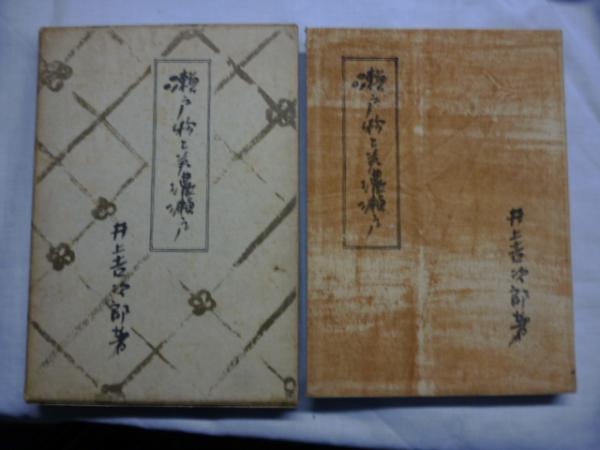 瀬戸と美濃瀬戸
井上吉次郎著
瀬戸と美濃瀬戸
井上吉次郎著